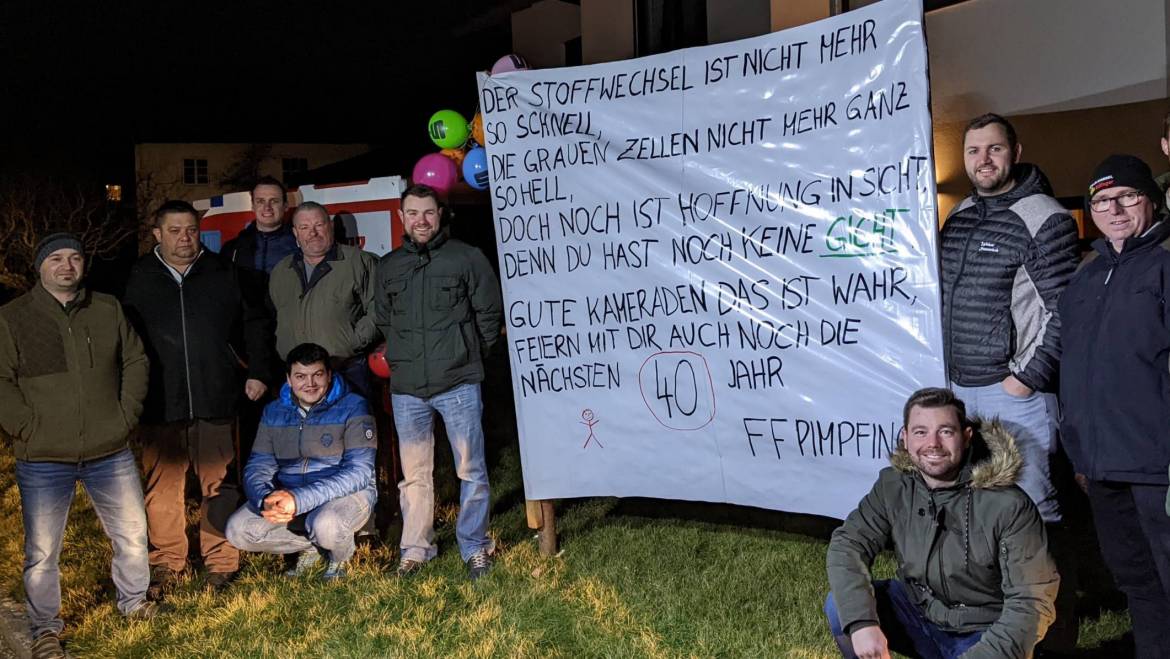 DER STOFFWECHSEL IST NICHT MEHR
SO SCHNELL,
DIE GRAUEN ZELLEN NICHT MEHR GANZ
SO HELL,
DOCH NOCH IST HOFFNUNG IN SICHT,
DENN DU HAST NOCH KEINE GICHT.
GUTE KAMERADEN DAS IST WAHR,
FEIERN MIT DIR AUCH NOCH DIE
NÄCHSTEN 40 JAHR
FF PIMPFING